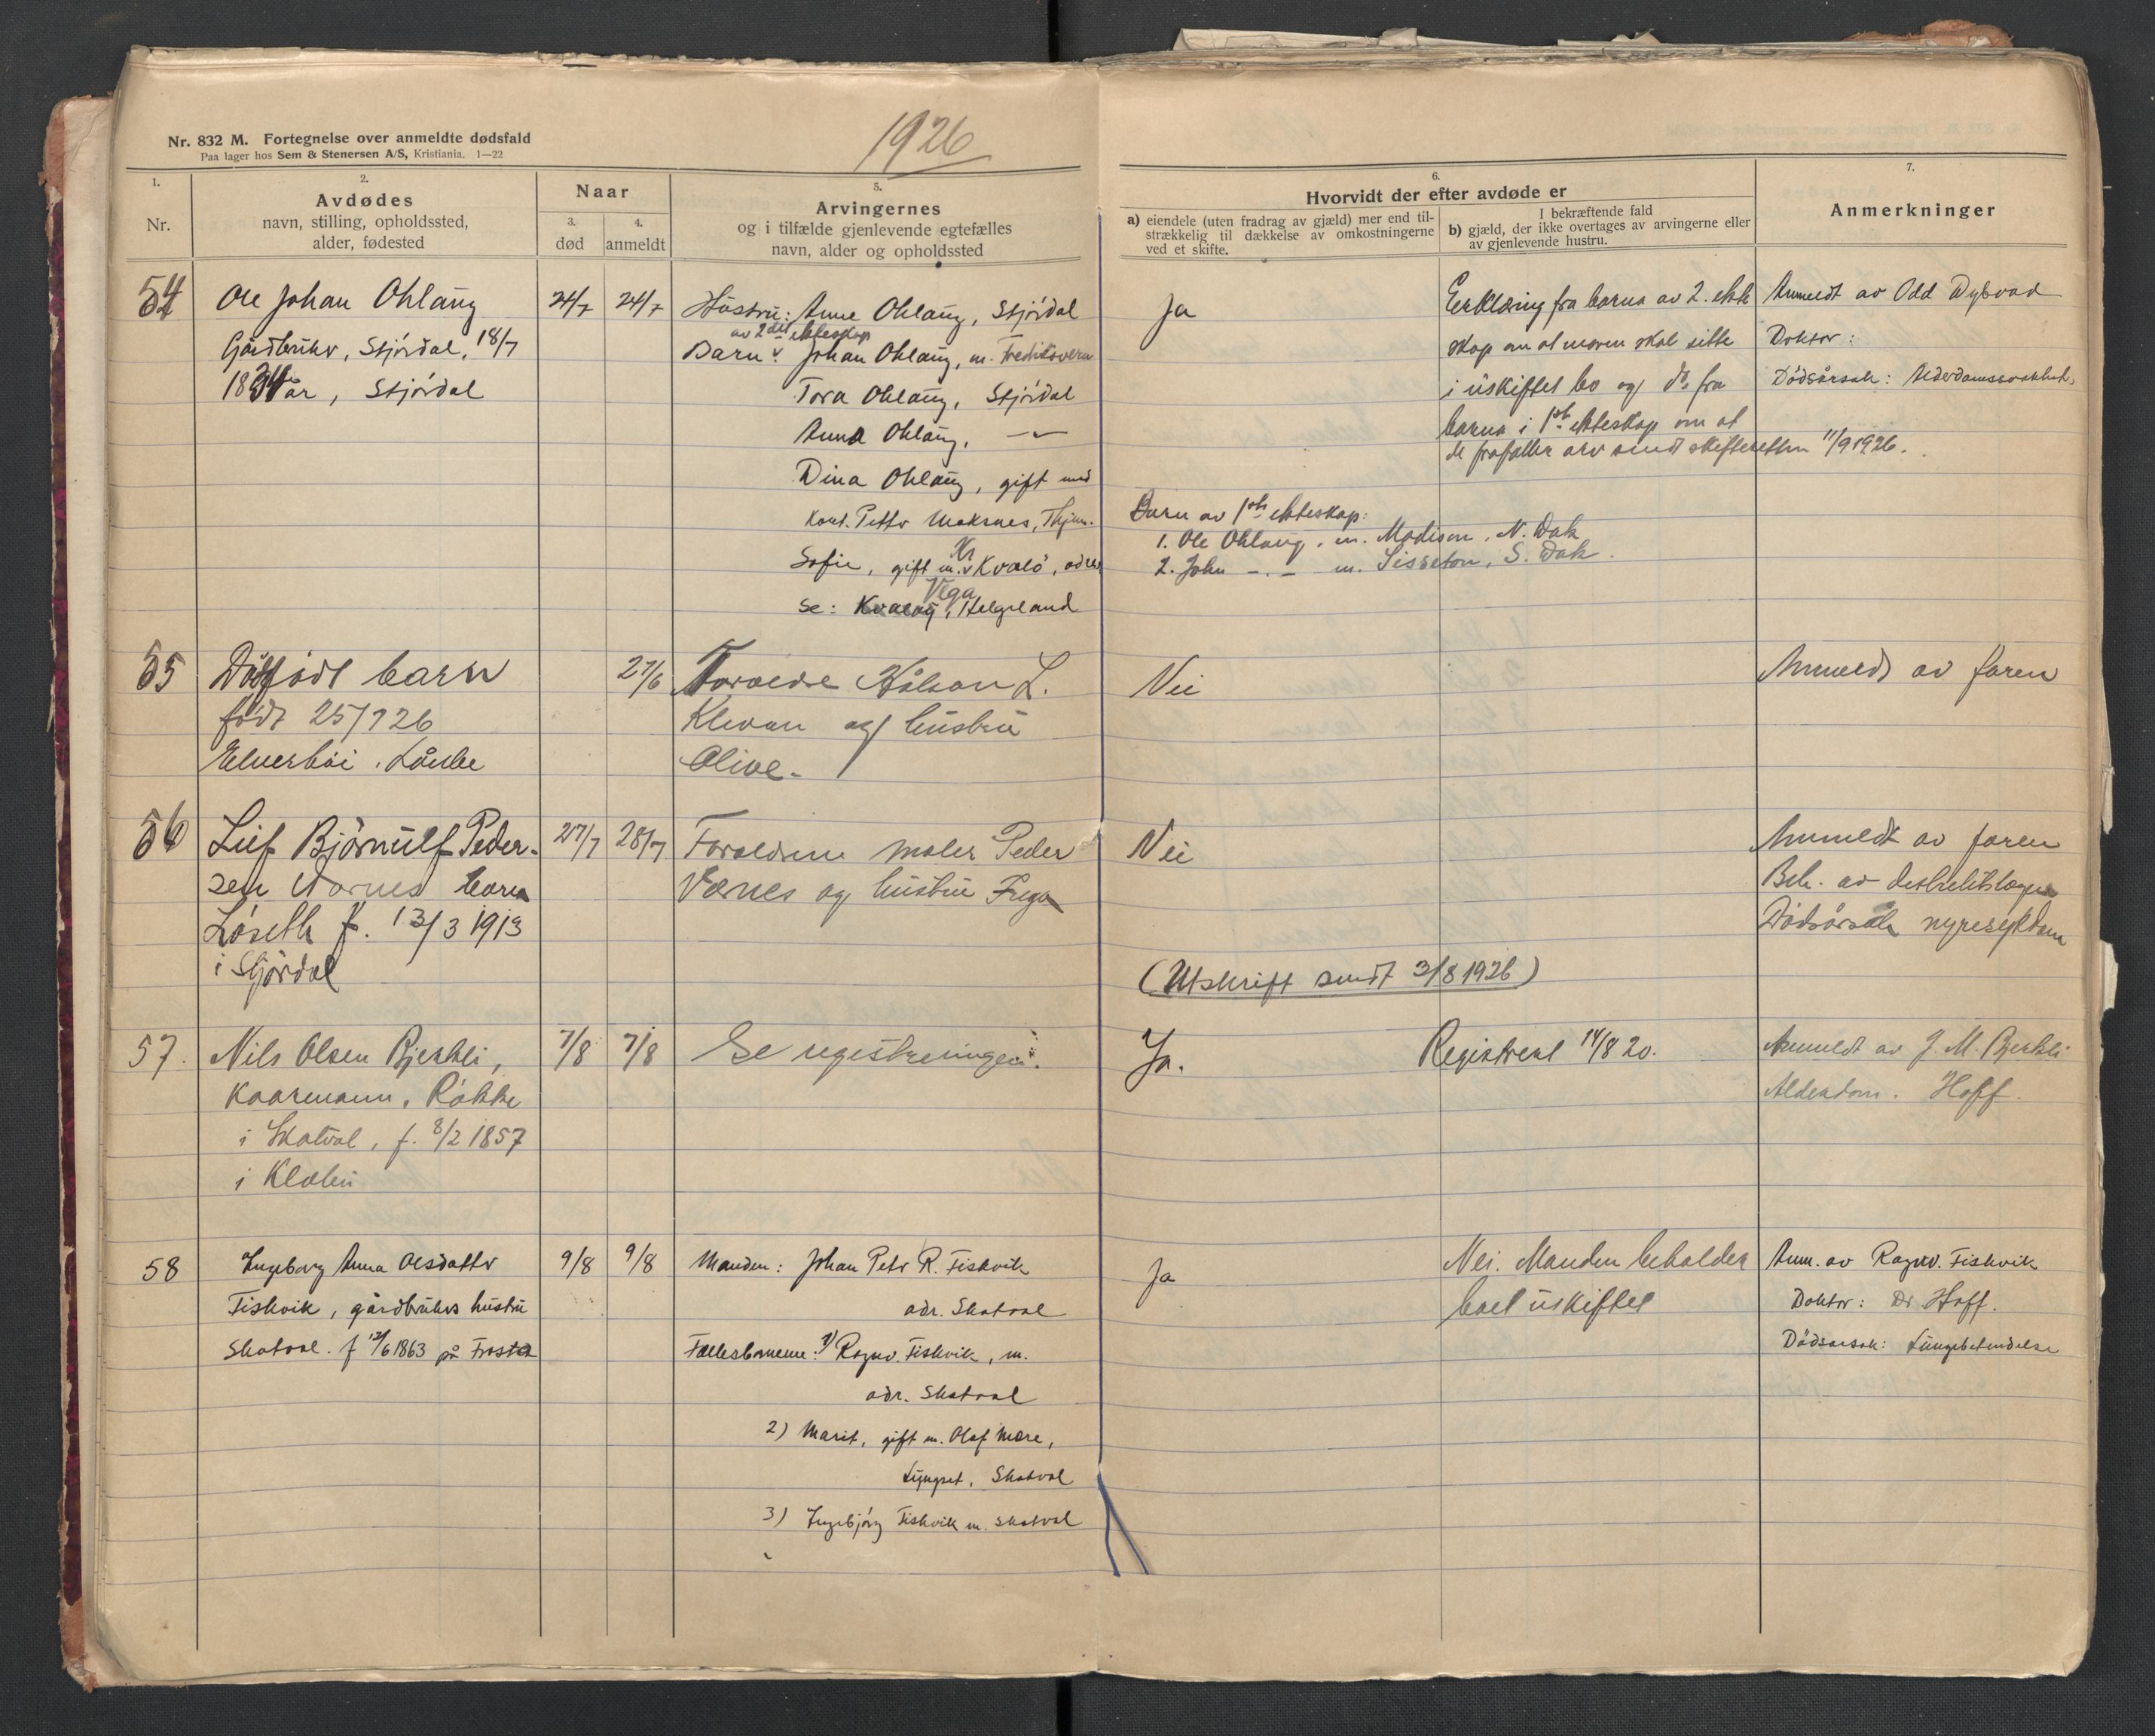 Nr. 832 M. Fortegnelse over anmeldte dødsfald
Paa lager hos Sem & Stenersen A/S, Kristiania. 1—22
1926
1.
Nr.
2.
Avdødes
navn, stilling, opholdssted,
alder, fødested
Naar
3.
død
4.
anmeldt
5.
Arvingernes
og i tilfælde gjenlevende egtefælles
navn, alder og opholdssted
6.
Hvorvidt der efter avdøde er
a) eiendele (uten fradrag av gjæld) mer end til-
strækkelig til dækkelse av omkostningerne
ved et skifte.
I bekræftende fald
b) gjæld, der ikke overtages av arvingerne eller
av gjenlevende hustru.
7.
Anmerkninger
54
Ole Johan Ohlaug
Gårdbruker, Stjórdal, 18/7
1834 år, Stjórdal
24/7
24/7
Hustru: Anne Ohlaug, Stjórdal
av 2det ekteskap
Barn: Johan Ohlaug, m. Fredriksvern
Tora Ohlaug, Stjórdal
Anna Ohlaug, —"—
Dina Ohlaug, gift med
Petter
Sofie, gift m. Kr Kvaló, adres
se: Vega, Helgeland
Ja
Barn av 1ste ekteskap:
1. Ole Ohlaug, m. Madison, N. Dak
2. John —.— m. Sisseton, S. Dak.
Erklæring fra barna av 2. ekte
skap om at moren skal sitte
i uskiftet bo og do. fra
barna i 1ste ekteskap om at
de frafaller arv sendt skifteretten 11/9 1926.
Anmeldt av Odd Dybvad
Doktor:
Dödsårsak: Alderdomssvakhet
55
Dödfödt barn
födt 25/7 26
Elverhöi, Lånke
27/6
Foreldre Håkon L.
Klevan og hustru
Olive.
Nei
Anmeldt av faren
56
Leif Björnulf Peder-
sen Værnes barn
Löseth f. 13/3 1913
i Stjördal
27/7
28/7
Foreldrene maler Peder
Værnes og hustru
Nei
(Utskrift sendt 3/8 1926)
Anmeldt av faren
Beh. av destriktslægen
Dödsårsak nyresykdom
57.
Nils Olsen Bjerkli,
Kaarmann, Røkke
i Skatval, f. 8/2 1857
i Klæbu
7/8
7/8
Se registreringen.
Ja.
Registrert 14/8 20.
Anmeldt av J. M. Bjerkli
Alderdom. Hoff.
58
Ingeborg Anna Olsdatter
Fiskvik, gårdbrukers hustru
Skatval. f 12/6 1863 på Frosta
9/8
9/8
Manden: Johan Peter R. Fiskvik
adr. Skatval
Fællesbarnene: 1) Ragnv. Fiskvik, m.
adr. Skatval
2) Marit, gift m. Olaf Mære,
Skatval
3) Ingebjörg Fiskvik m. Skatval
Ja
Nei. Manden beholder
boet uskiftet
Anm. av Ragnv. Fiskvik
Doktor: Dr Hoff.
Dödsaarsak: Lungebetendelse